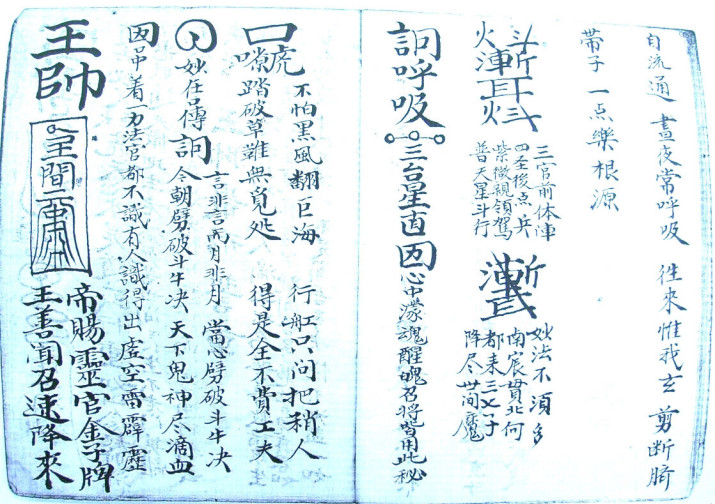 自流通 晝夜常呼吸 徃來惟我玄 剪断臍
帶子 一点樂根源
三官前体運
四圣後点兵
紫微親領駕
普天星斗行
妙法不須多
南宸貫北何
都来三七子
陣尽世间魔
詞呼吸
三台星
心中濛魂醒魄召將皆用此秘
口虎
不怕黑風翻巨海 行船只问把稍人
踏破草鞋無覓処 得是全不費工夫
妙任吕傳 詞 言非言而月非月 當心劈破斗牛决
今朝劈破斗牛决 天下鬼神尽滴血
中着一力法官都不識有人識得出虚空雷霹靂
王帥
帝賜靈官金子牌
王善闻召速降來